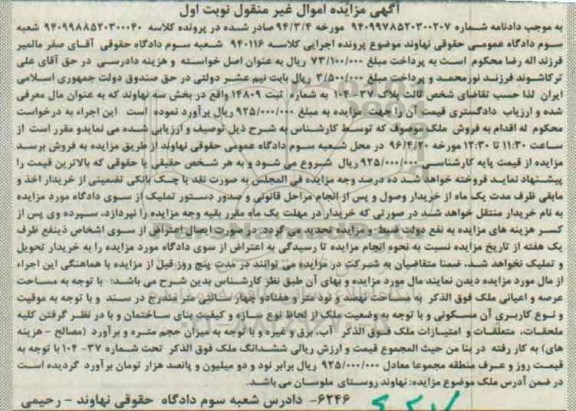 آگهی مزایده اموال غیر منقول نوبت اول
به موجب دادنامه شماره ۹۴۰۹۹۷۸۵۲۰۳۰۰۲۰۷ مورخه ۹۴/۳/۴ صادر شده در پرونده کلاسه ۹۴۰۹۹۸۸۵۲۰۳۰۰۰۴۰ شعبه
سوم دادگاه عمومی حقوقی نهاوند موضوع پرونده اجرایی کلاسه ۹۴۰۱۱۶ شعبه سوم دادگاه حقوقی آقای صفر مالمیر
فرزند اله رضا محکوم است به پرداخت مبلغ ۷۳/۱۰۰/۰۰۰ ریال به عنوان اصل خواسته و هزینه دادرسی در حق آقای علی
ترکاشوند فرزند نورمحمد و پرداخت مبلغ ۳/۵۰۰/۰۰۰ ریال بابت نیم عشر دولتی در حق صندوق دولت جمهوری اسلامی
ایران لذا حسب تقاضای شخص ثالث پلاک ۳۷- ۱۰۴ به شماره ثبت ۱۴۸۰۹ واقع در بخش سه نهاوند که به عنوان مال معرفی
شده و ارزیاب دادگستری قیمت آن را جهت مزایده به مبلغ ۹۲۵/۰۰۰/۰۰۰ ریال برآورد نموده است این اجراء به درخواست
محکوم له اقدام به فروش ملک موصوف که توسط کارشناس به شرح ذیل توصیف و ارزیابی شده می نمایدو مقرر است از
ساعت ۱۱:۳۰ تا ۱۲:۳۰ مورخه ۹۶/۴/۲۰ در محل شعبه سوم دادگاه عمومی حقوقی نهاوند از طریق مزایده به فروش برسد
مزایده از قیمت پایه کارشناسی ۹۲۵/۰۰۰/۰۰۰ ریال شروع می شود و به هر شخص حقیقی یا حقوقی که بالاترین قیمت را
پیشنهاد نماید فروخته خواهد شد ده درصد وجه مزایده فی المجلس به صورت نقد یا چک بانکی تضمینی از خریدار اخذ و
مابقی ظرف مدت یک ماه از خریدار وصول و پس از انجام مراحل قانونی و صدور دستور تملیک از سوی دادگاه مورد مزایده
به نام خریدار منتقل خواهد شد در صورتی که خریدار در مهلت یک ماه مقرر بقیه وجه مزایده را نپردازد، سپرده وی پس از
کسر هزینه های مزایده به نفع دولت ضبط و مزایده تجدید می گردد. در صورت اعمال اعتراض از سوی اشخاص ذینفع ظرف
یک هفته از تاریخ مزایده نسبت به نحوه انجام مزایده تا رسیدگی به اعتراض از سوی دادگاه مورد مزایده را به خریدار تحویل
و تملیک نخواهد شد. ضمنا متقاضیان به شرکت در مزایده می توانند در مدت پنج روز قبل از مزایده با هماهنگی این اجراء
از مال مورد مزایده دیدن نمایند مال مورد مزایده و بهای آن طبق نظر کارشناس بدین شرح می باشد: با توجه به مساحت
عرصه و اعیانی ملک فوق الذکر به مساحت نهصد و نود متر و هفتاد و چهار سانتی متر مندرج در سند و با توجه به موقعیت
و نوع کاربری آن مسکونی و با توجه به وضعیت ملک از لحاظ نوع سازه و کیفیت بنای ساختمان و با در نظر گرفتن کلیه
ملحقات، متعلقات و امتیازات ملک فوق الذکر آب، برق و غیره، با توجه به میزان حجم متره و برآورد (مصالح - هزینه
های) به کار رفته در بنا من حیث المجموع قیمت و ارزش ریالی ششدانگ ملک فوق الذکر تحت شماره ۳۷- ۱۰۴ با توجه به
قیمت روز و عرف منطقه مجموعا معادل ۹۲۵/۰۰۰/۰۰۰ ریال برابر نود و دو میلیون و پانصد هزار تومان برآورد گردیده است
در ضمن آدرس ملک موضوع مزایده: نهاوند روستای ملوسان می باشد.
۶۲۴۶- دادرس شعبه سوم دادگاه حقوقی نهاوند - رحیمی